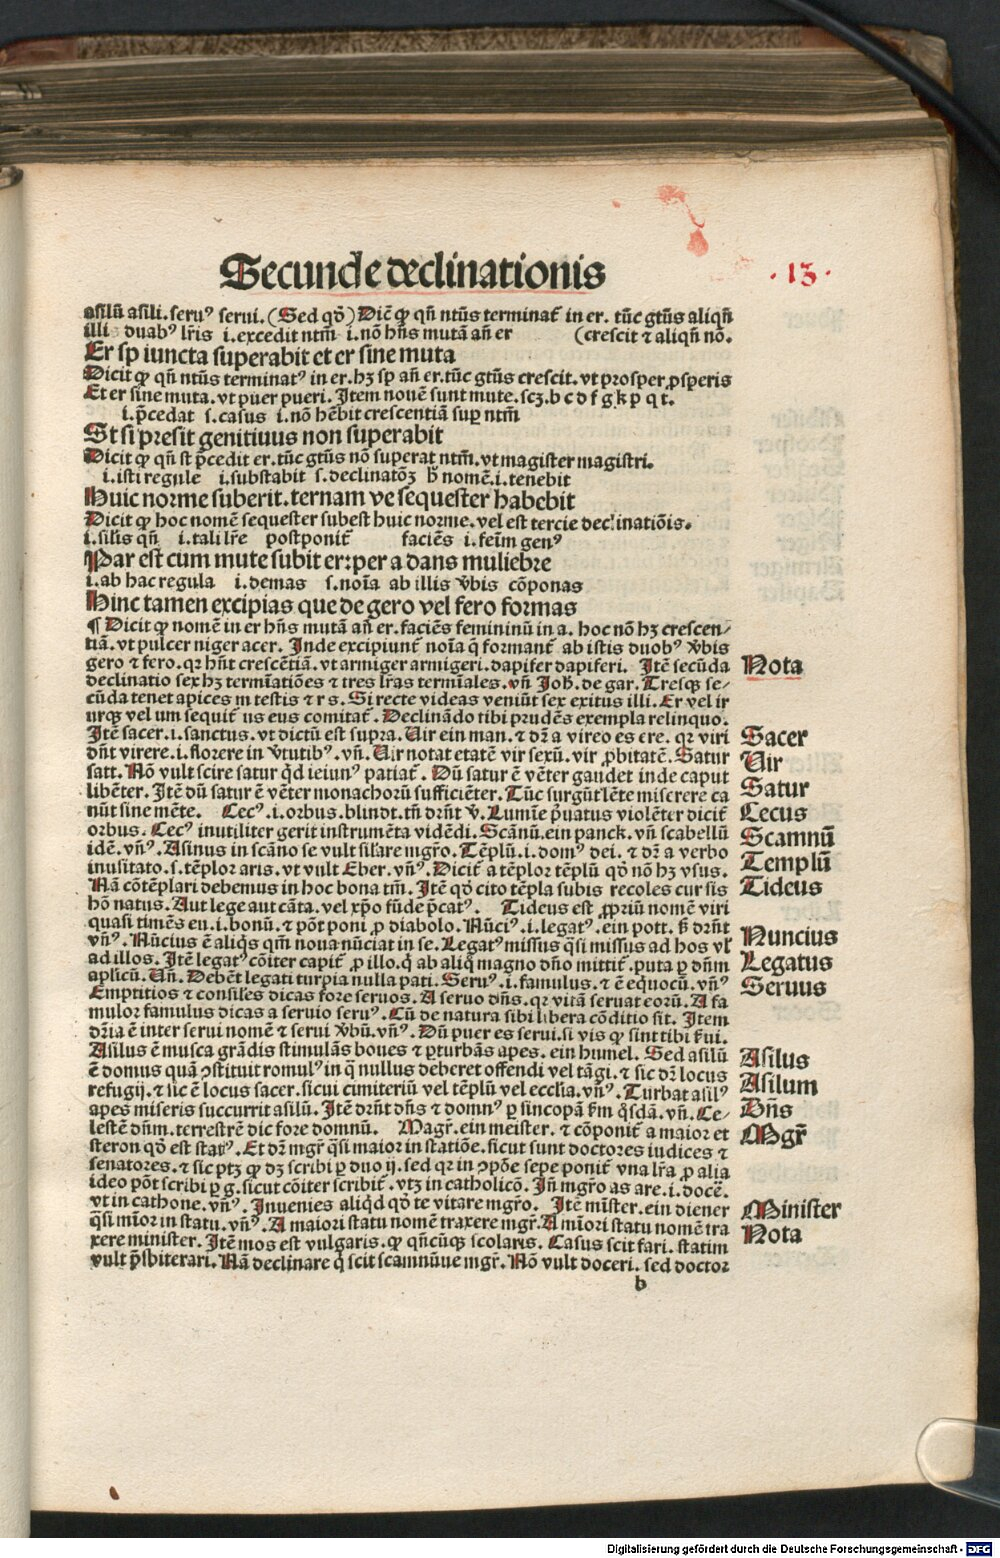 Secunde declinationis
· 13 ·
asilū asili. seruꝰ serui. (Sed qđ) Dicit̄ ꝙ qn̄ ntūs terminat̄ in er. tūc gtūs aliqn̄
illi duabꝰ lr̄is i. excedit ntm̄ i. nō hn̄s mutā an̄ er (crescit ⁊ aliqn̄ nō.
Er sp iuncta superabit et er sine muta
Dicit ꝙ qn̄ ntūs terminatꝰ in er. hꝫ sp an̄ er. tūc gtūs crescit. vt prosper ꝓsperis
Et er sine muta. vt puer pueri. Item nouē sunt mute. scꝫ. b c d f g k p q t.
i. p̄cedat s. casus i. nō hēbit crescentiā suꝑ ntm̄
St si presit genitiuus non superabit
Dicit ꝙ qn̄ st p̄cedit er. tūc gtūs nō superat ntm̄. vt magister magistri.
i. isti regule i. substabit s. declinatōꝫ h̄ nomē. i. tenebit
Huic norme suberit. ternam ve sequester habebit
Dicit ꝙ hoc nomē sequester subest huic norme. vel est tercie declinatiōis.
i. silis qn̄ i. tali lr̄e postponit̄ faciēs i. feīm genꝰ
Par est cum mute subit er: per a dans muliebre
i. ab hac regula i. demas s. noīa ab illis v̄bis cōponas
Hinc tamen excipias que de gero vel fero formas
¶ Dicit ꝙ nomē in er hn̄s mutā an̄ er. faciēs femininū in a. hoc nō hꝫ crescen/
tiā. vt pulcer niger acer. Inde excipiunt̄ noīa q̄ formant̄ ab istis duobꝰ v̄bis
gero ⁊ fero. qꝛ hn̄t crescētiā. vt armiger armigeri. dapifer dapiferi. Itē secūda
Nota
declinatio sex hꝫ termīatiōes ⁊ tres lr̄as termīales. vn̄ Joh̄. de gar. Tresqꝫ se/
cūda tenet apices m testis ⁊ r s. Si recte videas veniūt sex exitus illi. Er vel ir
urqꝫ vel um sequit̄ us eus comitat̄. Declinādo tibi prudēs exempla relinquo.
Itē sacer. i. sanctus. vt dictū est supra. Uir ein man. ⁊ dr̄ a vireo es ere. qꝛ viri
Sacer
dn̄t virere. i. florere in v̄tutibꝰ. vn̄. Uir notat etatē vir sexū. vir ꝓbitatē. Satur
Uir
satt. Nō vult scire satur qd ieiunꝰ patiat̄. Dū satur ē vēter gaudet inde caput
Satur
libēter. Itē dū satur ē vēter monachorū sufficiēter. Tūc surgūt lēte miserere ca
nūt sine mēte. Cecꝰ. i. orbus. blindt. tn̄ drn̄t v̄. Lumīe p̄uatus violēter dicit̄
Cecus
orbus. Cecꝰ inutiliter gerit instrumēta vidēdi. Scānū. ein panck. vn̄ scabellū
Scamnū
idē. vn̄ꝰ. Asinus in scāno se vult silare mgr̄o. Tēplū. i. domꝰ dei. ⁊ dr̄ a verbo
inusitato. s. tēplor aris. vt vult Eber. vn̄ꝰ. Dicit̄ a tēplor tēplū qđ nō hꝫ vsus.
Templū
Nā cōtēplari debemus in hoc bona tm̄. Itē qđ cito tēpla subis recoles cur sis
Tideus
hō natus. Aut lege aut cāta. vel xp̄o fūde p̄catꝰ. Tideus est ꝓpriū nomē viri
quasi timēs eu. i. bonū. ⁊ pōt poni ꝓ diabolo. Nūciꝰ. i. legatꝰ. ein pott. s̄ drn̄t
Nuncius
vn̄ꝰ. Nūcius ē aliqs qm̄ noua nūciat in se. Legatꝰ missus q̄si missus ad hos vl̄
ad illos. Itē legatꝰ cōiter capit̄ ꝓ illo. q̄ ab aliq̄ magno dn̄o mittit̄. puta ꝑ dn̄m
Legatus
aplicū. Un̄. Debēt legati turpia nulla pati. Seruꝰ. i. famulus. ⁊ ē equocū. vn̄ꝰ
Seruus
Emptitios ⁊ consiles dicas fore seruos. A seruo dn̄s. qꝛ vitā seruat eorū. A fa
mulor famulus dicas a seruio seruꝰ. Cū de natura sibi libera cōditio sit. Item
dr̄ia ē inter serui nomē ⁊ serui v̄bū. vn̄ꝰ. Dū puer es serui. si vis ꝙ sint tibi s̄ui.
Asilus ē musca grādis stimulās boues ⁊ ꝑturbās apes. ein humel. Sed asilū
Asilus
ē domus quā ꝯstituit romulꝰ in q̄ nullus deberet offendi vel tāgi. ⁊ sic dr̄ locus
refugij. ⁊ sic ē locus sacer. sicui cimiteriū vel tēplū vel ecclia. vn̄ꝰ. Turbat asilꝰ
Asilum
apes miseris succurrit asilū. Itē drn̄t dn̄s ⁊ domnꝰ ꝑ sincopā s̄m q̄sdā. vn̄. Ce/
Dn̄s
lestē dn̄m. terrestrē dic fore domnū. Magr̄. ein meister. ⁊ cōponit̄ a maior et
Mgr̄
steron qđ est statꝰ. Et dr̄ mgr̄ q̄si maior in statiōe. sicut sunt doctores iudices ⁊
senatores. ⁊ sic ptꝫ ꝙ dꝫ scribi ꝑ duo ij. sed qꝛ in ꝯpōe sepe ponit̄ vna lr̄a ꝓ alia
ideo pōt scribi ꝑ g. sicut cōiter scribit̄. vtꝫ in catholicō. Jn̄ mgr̄o as are. i. docē.
vt in cathone. vn̄ꝰ. Inuenies aliqd qđ te vitare mgr̄o. Itē mīster. ein diener
Minister
q̄si mīor in statu. vn̄ꝰ. A maiori statu nomē traxere mgr̄. A mīori statu nomē tra
Nota
xere minister. Itē mos est vulgaris. ꝙ qn̄cūqꝫ scolaris. Casus scit fari. statim
vult p̄sbiterari. Nā declinare q̄ scit scamnūue mgr̄. Nō vult doceri. sed doctor
b
Digitalisierung gefördert durch die Deutsche Forschungsgemeinschaft - DFG